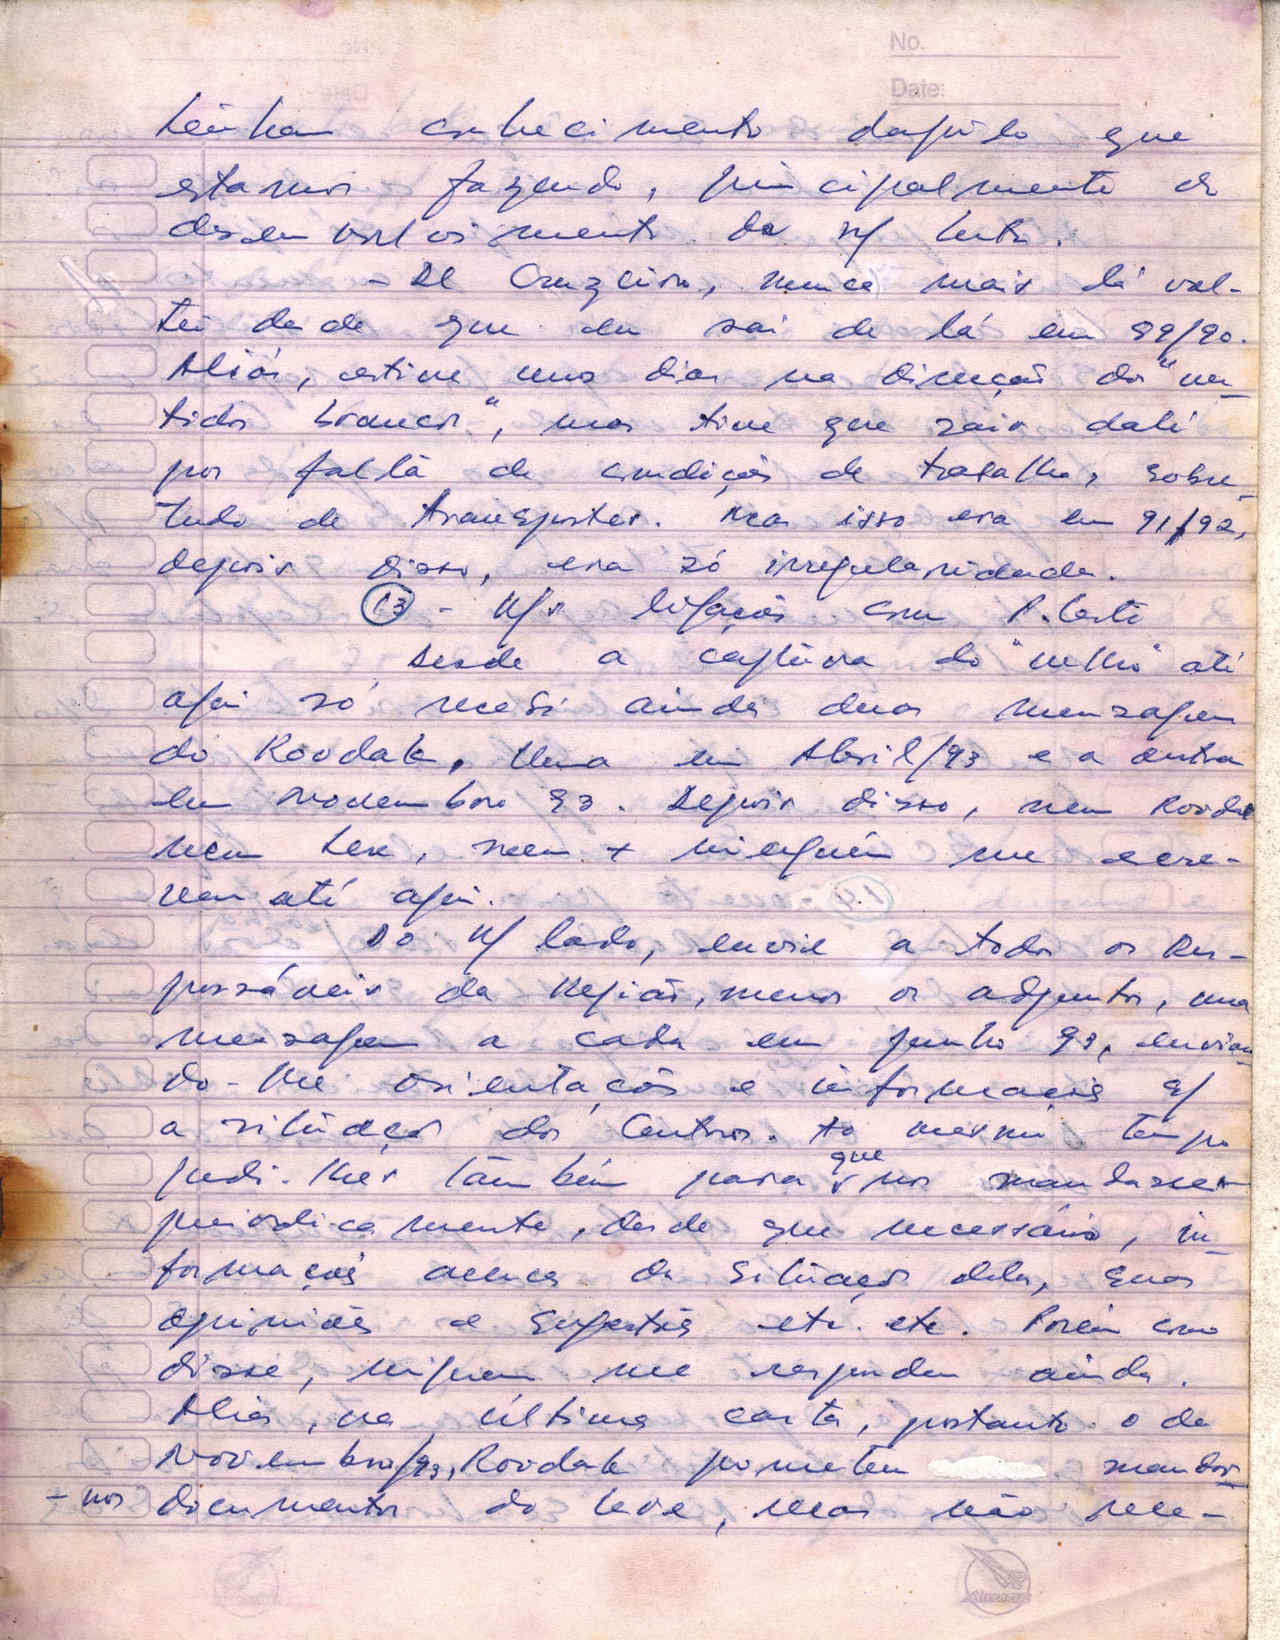 No.
Date:
tenham conhecimento daquilo que
estamos fazendo, principalmente do
desenvolvimento da n/ luta.
- De Cruzeiro, nunca mais lá vol-
tei desde que eu saí de lá em 89/90.
Aliás, estive uns dias na direcção dos "ves-
tidos brancos", mas tive que sair dali
por falta de condições de trabalho, sobre-
tudo de transportes. Mas isso era em 91/92,
depois disso, era só irregularidade.
13 - N/s ligações com P. Leste
Desde a captura do "velho" até
aqui só recebi ainda duas mensagens
do Roodak. Uma em Abril/93 e a outra
em Novembro 93. Depois disso, nem Roodak
nem Lere, nem + ninguém me escre-
veu até aqui.
Do n/ lado, enviei a todos os Res-
ponsáveis da Região, menos os adjuntos, uma
mensagem a cada em Junho 93, envian-
do-lhe orientações e informações s/
a situação dos Centros. Ao mesmo tempo
pedi-lhes também para que nos mandassem
periodicamente, desde que necessário, in-
formações acerca da situação deles, suas
opiniões e sugestões etc. etc. Porém como
disse, ninguem me respondeu ainda.
Aliás, na última carta, portanto o de
Novembro/93, Roodak prometeu mandar
-nos documentos do Lere, mas não rece-